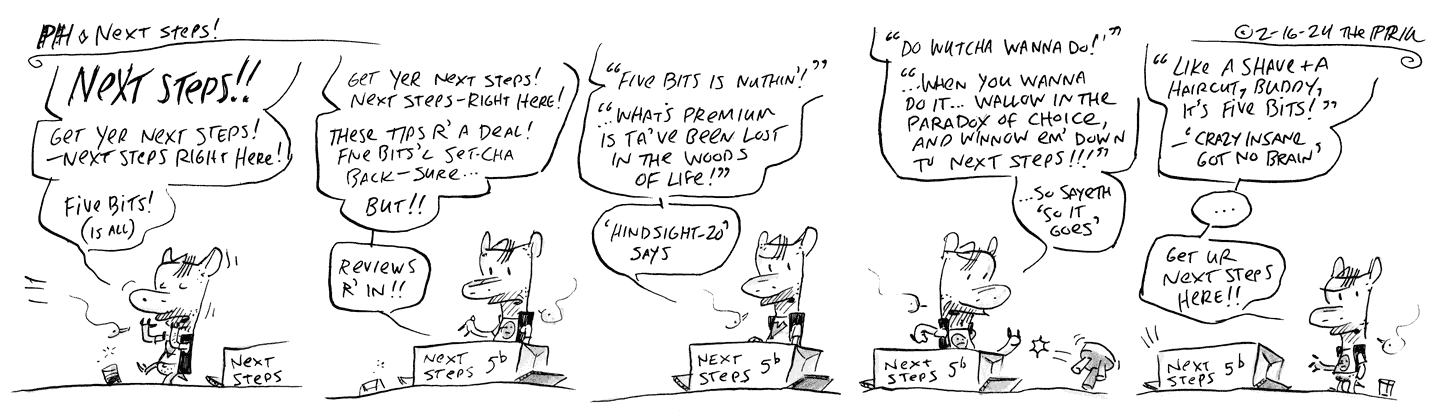 PH ◊ NEXT STEPS!
©2-16-24 THE PRIA
NEXT STEPS!!
GET YER NEXT STEPS!
-NEXT STEPS RIGHT HERE!
FIVE BITS!
(IS ALL)
NEXT
STEPS
GET YER NEXT STEPS!
NEXT STEPS-RIGHT HERE!
THESE TIPS R' A DEAL!
FIVE BITS'L SET-CHA
BACK-SURE...
BUT!!
REVIEWS
R' IN!!
NEXT
STEPS 5b
"FIVE BITS IS NUTHIN'!"
"...WHAT'S PREMIUM
IS TA'VE BEEN LOST
IN THE WOODS
OF LIFE!"
'HINDSIGHT-20'
SAYS
NEXT
STEPS 5b
"DO WUTCHA WANNA DO!"
"...WHEN YOU WANNA
DO IT... WALLOW IN THE
PARADOX OF CHOICE,
AND WINNOW EM' DOWN
TU NEXT STEPS!!!"
...SO SAYETH
'SO IT
GOES'
NEXT
STEPS 5b
"LIKE A SHAVE + A
HAIRCUT, BUDDY,
IT'S FIVE BITS!"
-'CRAZY INSANE
GOT NO BRAIN'
...
GET UR
NEXT STEPS
HERE!!
NEXT
STEPS 5b